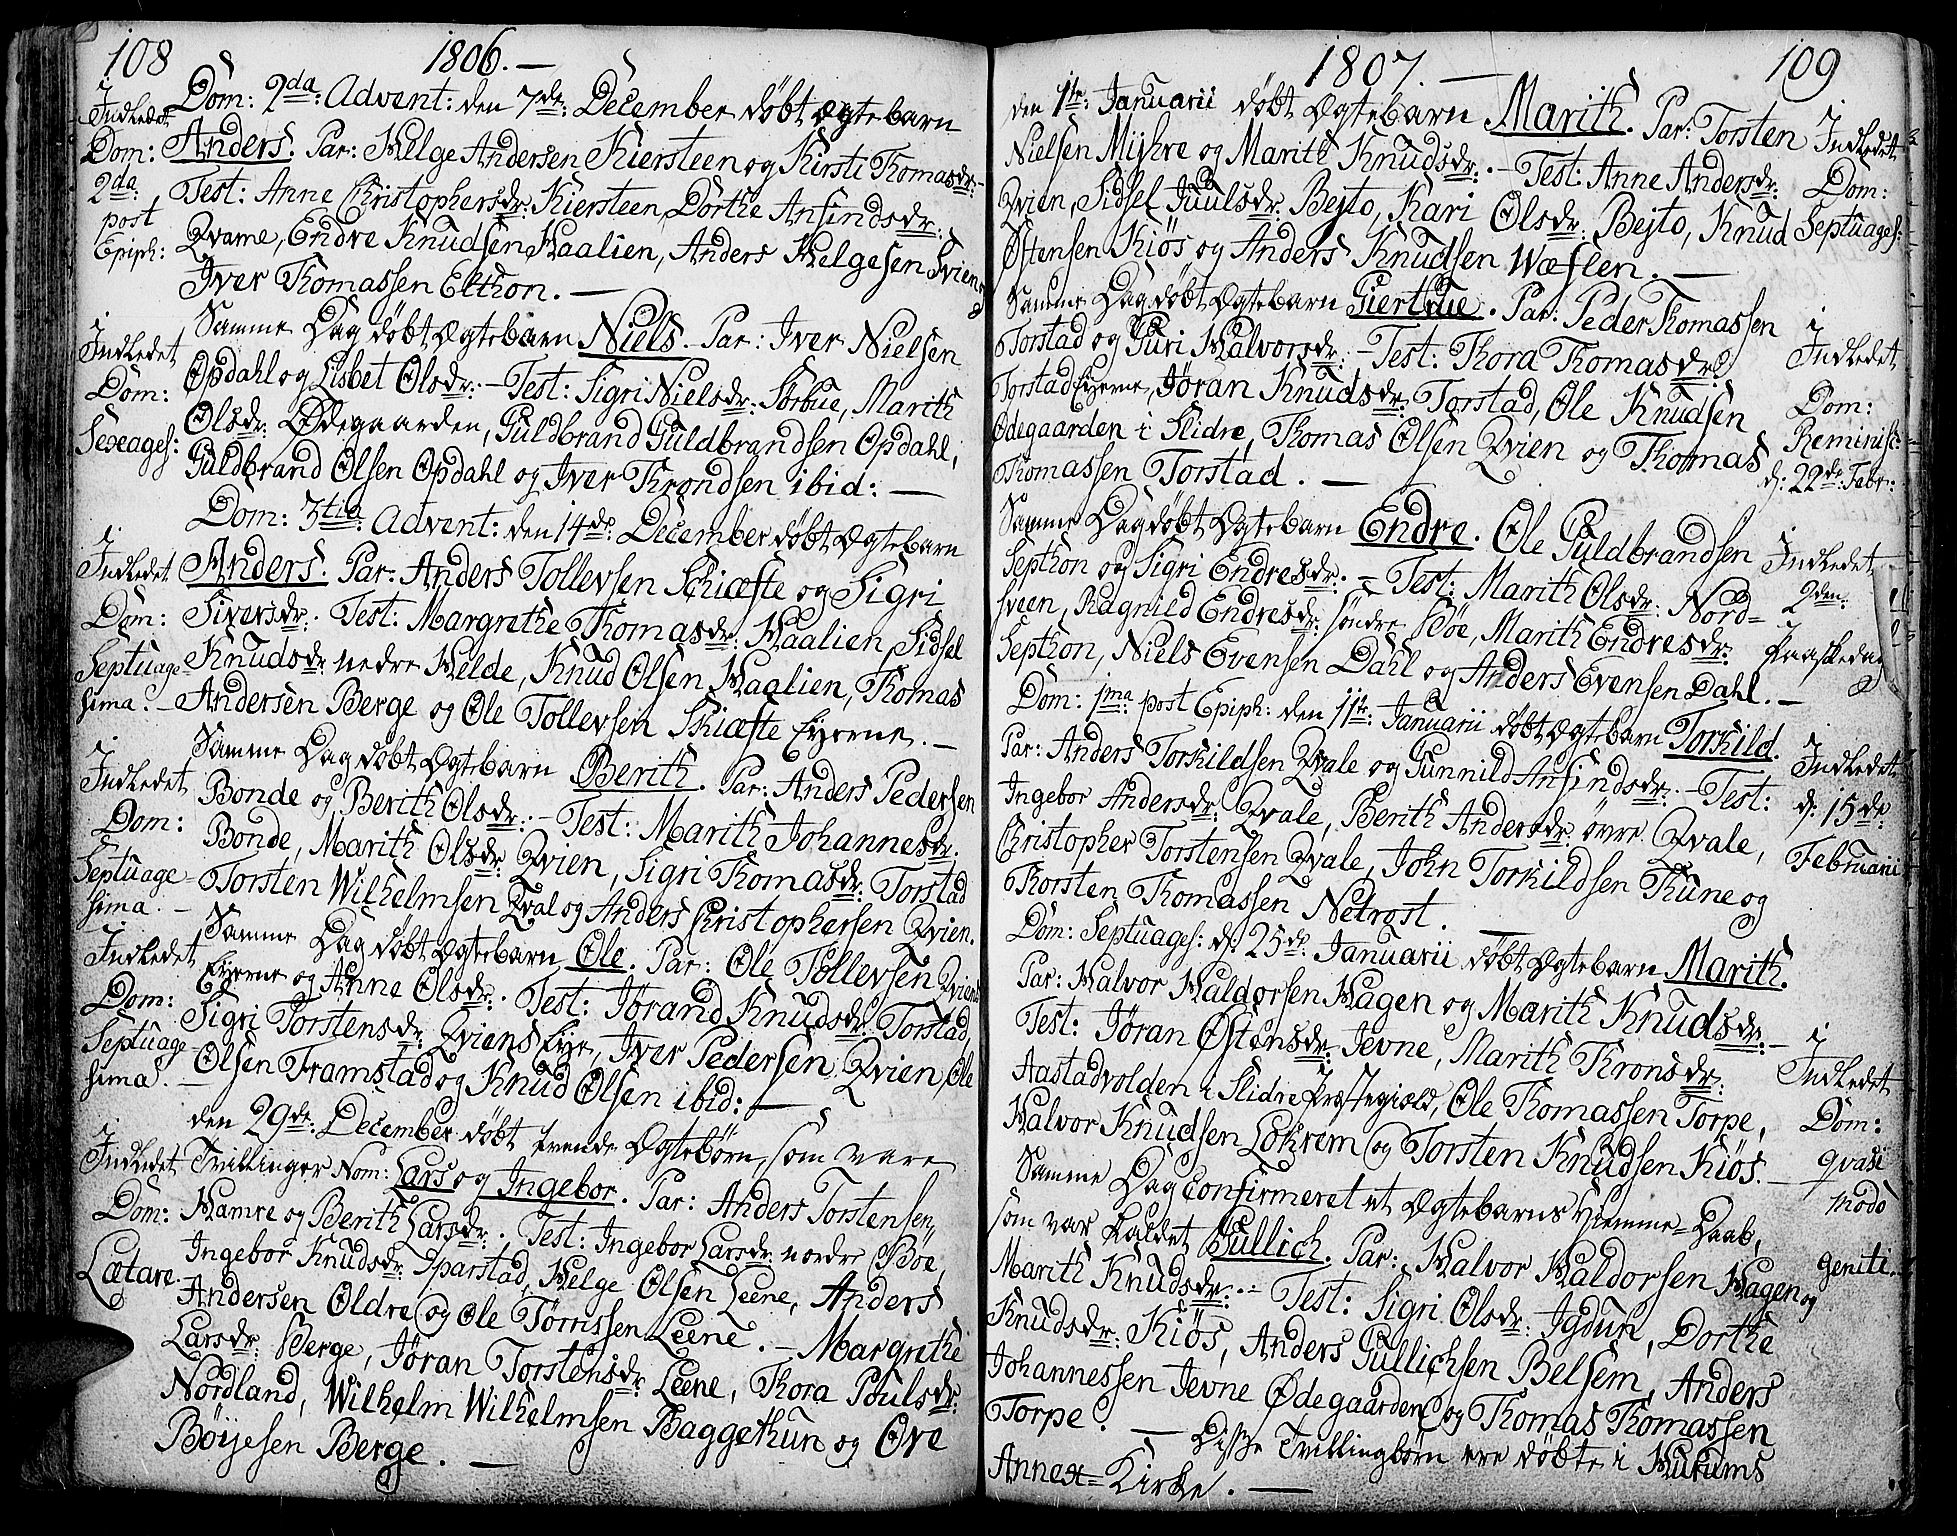 108
1806. —
Dom: 2da: Advent: den 7de: December döbt Ægtebarn
Anders. Par: Helge Andersen Kiersteen og Kirsti Thomasdr: –
Test: Anne Christophersdr: Kiersteen, Dorthe Ansindsdr:
Qvame, Endre Knudsen Haalien, Anders Helgesen Qviens
Iver Thomassen Elthon. —
Indledet
Dom:
2da:
post
Epiph:
Samme Dag döbt Ægtebarn Niels. Par: Iver Nielsen
Opdahl og Lisbet Olsdr: – Test: Sigri Nielsdr: Sörbue, Marith
Olsdr: Ødegaarden, Guldbrand Guldbrandsen Opdahl,
Guldbrand Olsen Opdahl og Iver Throndsen ibid: —
Indledet
Dom:
Sexages:
Dom: 3tia: Advent: den 14de: December döbt Ægtebarn
Anders. Par: Anders Tollevsen Schiæfte og Sigri
Siversdr: Test: Margrethe Thomasdr: Haalien, Sidsel
Knudsdr: nedre Helde, Knud Olsen Haalien, Thomas
Andersen Berge og Ole Tollevsen Skiæfte Eyerne. —
Indledet
Dom:
Septuage
sima. –
Samme Dag döbt Ægtebarn Berith. Par: Anders Pedersen
Bonde og Berith Olsdr: – Test: Marith Johannesdr:
Bonde, Marith Olsdr: Qvien, Sigri Thomasdr: Torstad
Torsten Wilhelmsen Qval og Anders Christophersen Qvien.
Indledet
Dom:
Septuage
sima. –
Samme Dag döbt Ægtebarn Ole. Par: Ole Tollevsen Qviens
Eyerne og Anne Olsdr: Test: Jørand Knudsdr: Torstad,
Sigri Torstensdr: Qviens Eye, Iver Pedersen Qvien, Ole
Olsen Framstad og Knud Olsen ibid: —
Indledet
Dom:
Septuage
sima. —
den 29de: December döbt tvende Ægtebørn, som vare
Tvillinger Nom: Lars og Ingebor. Par: Anders Torstensen
Hamre og Berith Larsdr: Test: Ingebor Larsdr: nordre Böe,
Ingebor Knudsdr: Sparstad, Helge Olsen Leene, Anders
Andersen Oldre og Ole Törrissen Leene. – Margrethe
Larsdr: Berge, Jöran Torstensdr: Leene, Thora Poulsdr:
Nordland, Wilhelm Wilhelmsen Baggethun og Ove
Böyesen Berge. —
Indledet
Dom:
Lætare.
1807. —
109
den 1te: Januarii döbt Ægtebarn Marith. Par: Torsten
Nielsen Myhre og Marith Knudsdr: – Test: Anne Andersdr:
Qvien, Sidsel Juulsdr: Bejto, Kari Olsdr: Bejto, Knud
Østensen Kiös og Anders Knudsen Wæflen. —
Indledet
Dom:
Septuages:
Samme Dag döbt Ægtebarn Giertrue. Par: Peder Thomassen
Torstad og Guri Halvorsdr: – Test: Thora Thomasdr:
Torstad Eyerne, Jøran Knudsdr: Torstad, Ole Knudsen
Ødegaarden i Slidre, Thomas Olsen Qvien og Thomas
Thomassen Torstad. —
Indledet
Dom:
Reminisc:
d: 22de: Febr:
Samme Dag döbt Ægtebarn Endre. Ole Guldbrandsen
Septhon og Sigri Endresdr: – Test: Marith Olsdr: Nord=
sveen, Ragnild Endresdr: söndre Böe, Marith Endresdr:
Septhon, Niels Evensen Dahl og Anders Evensen Dahl. –
Indledet
2den:
Paaskedag
Dom: 1ma: post Epiph: den 11te: Januarii döbt Ægtebarn Torkild.
Par: Anders Torkildsen Qvale og Gunnild Ansindsdr: – Test:
Ingebor Andersdr: Qvale, Berith Andersdr: övre Qvale,
Christopher Torstensen Qvale, John Torkildsen Thune og
Thorsten Thomassen Netrost. —
Indledet
d: 15de
Februarii
Dom: Septuages: d: 25de Januarii döbt Ægtebarn Marith.
Par: Halvor Haldorsen Hagen og Marith Knudsdr: –
Test: Jöran Østensdr: Jevne, Marith Thronsdr:
Aastadvolden i Slidre Præstegiæld, Ole Thomassen Torpe,
Halvor Knudsen Lohrem og Torsten Knudsen Kiös. –
Indledet
Dom:
qvasi
modo
geniti.
Samme Dag confirmeret et Ægtebarns Hiemme=Daab,
som var kaldet Gullich. Par: Halvor Haldorsen Hagen og
Marith Knudsdr: – Test: Sigri Olsdr: Igdun, Dorthe
Knudsdr: Kiös, Anders Gullichsen Belsem, Anders
Johannessen Jevne Ødegaarden og Thomas Thomassen
Torpe. — Disse Tvillingbørn ere döbte i Hurums
Annex=Kirke. —